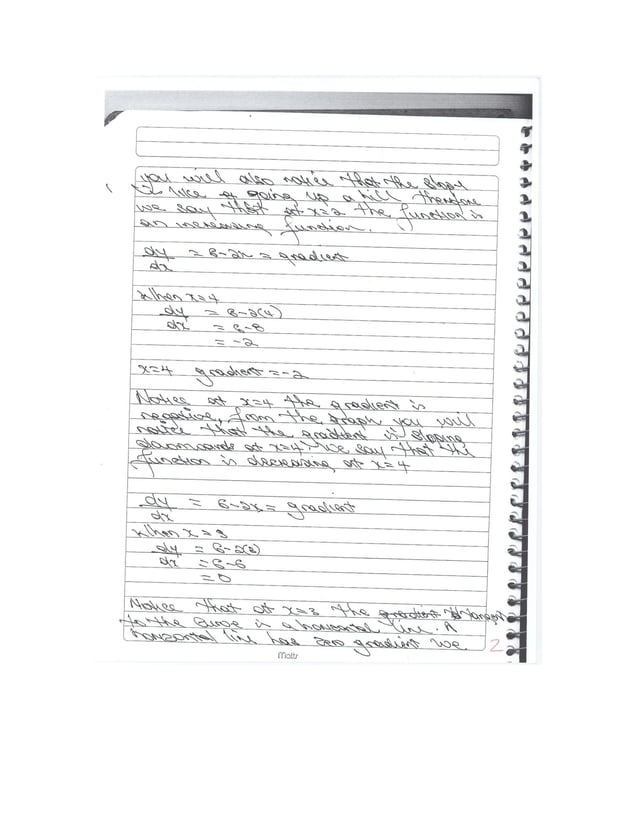 you will also notice that the slope
is like a going up a hill, therefore
we say that at x=2 the function is
an increasing function.
dy/dx = 6-2x = gradient
When x=4
dy/dx = 6-2(4)
= 6-8
= -2
x=4 gradient = -2
Notice at x=4 the gradient is
negative, from the graph you will
notice that the gradient is slopping
downwards at x=4. We say that the
function is decreasing at x=4
dy/dx = 6-2x = gradient
When x=3
dy/dx = 6-2(3)
= 6-6
= 0
Notice that at x=3 the gradient tangent
to the curve is a horizontal line. A
horizontal line has zero gradient we
2